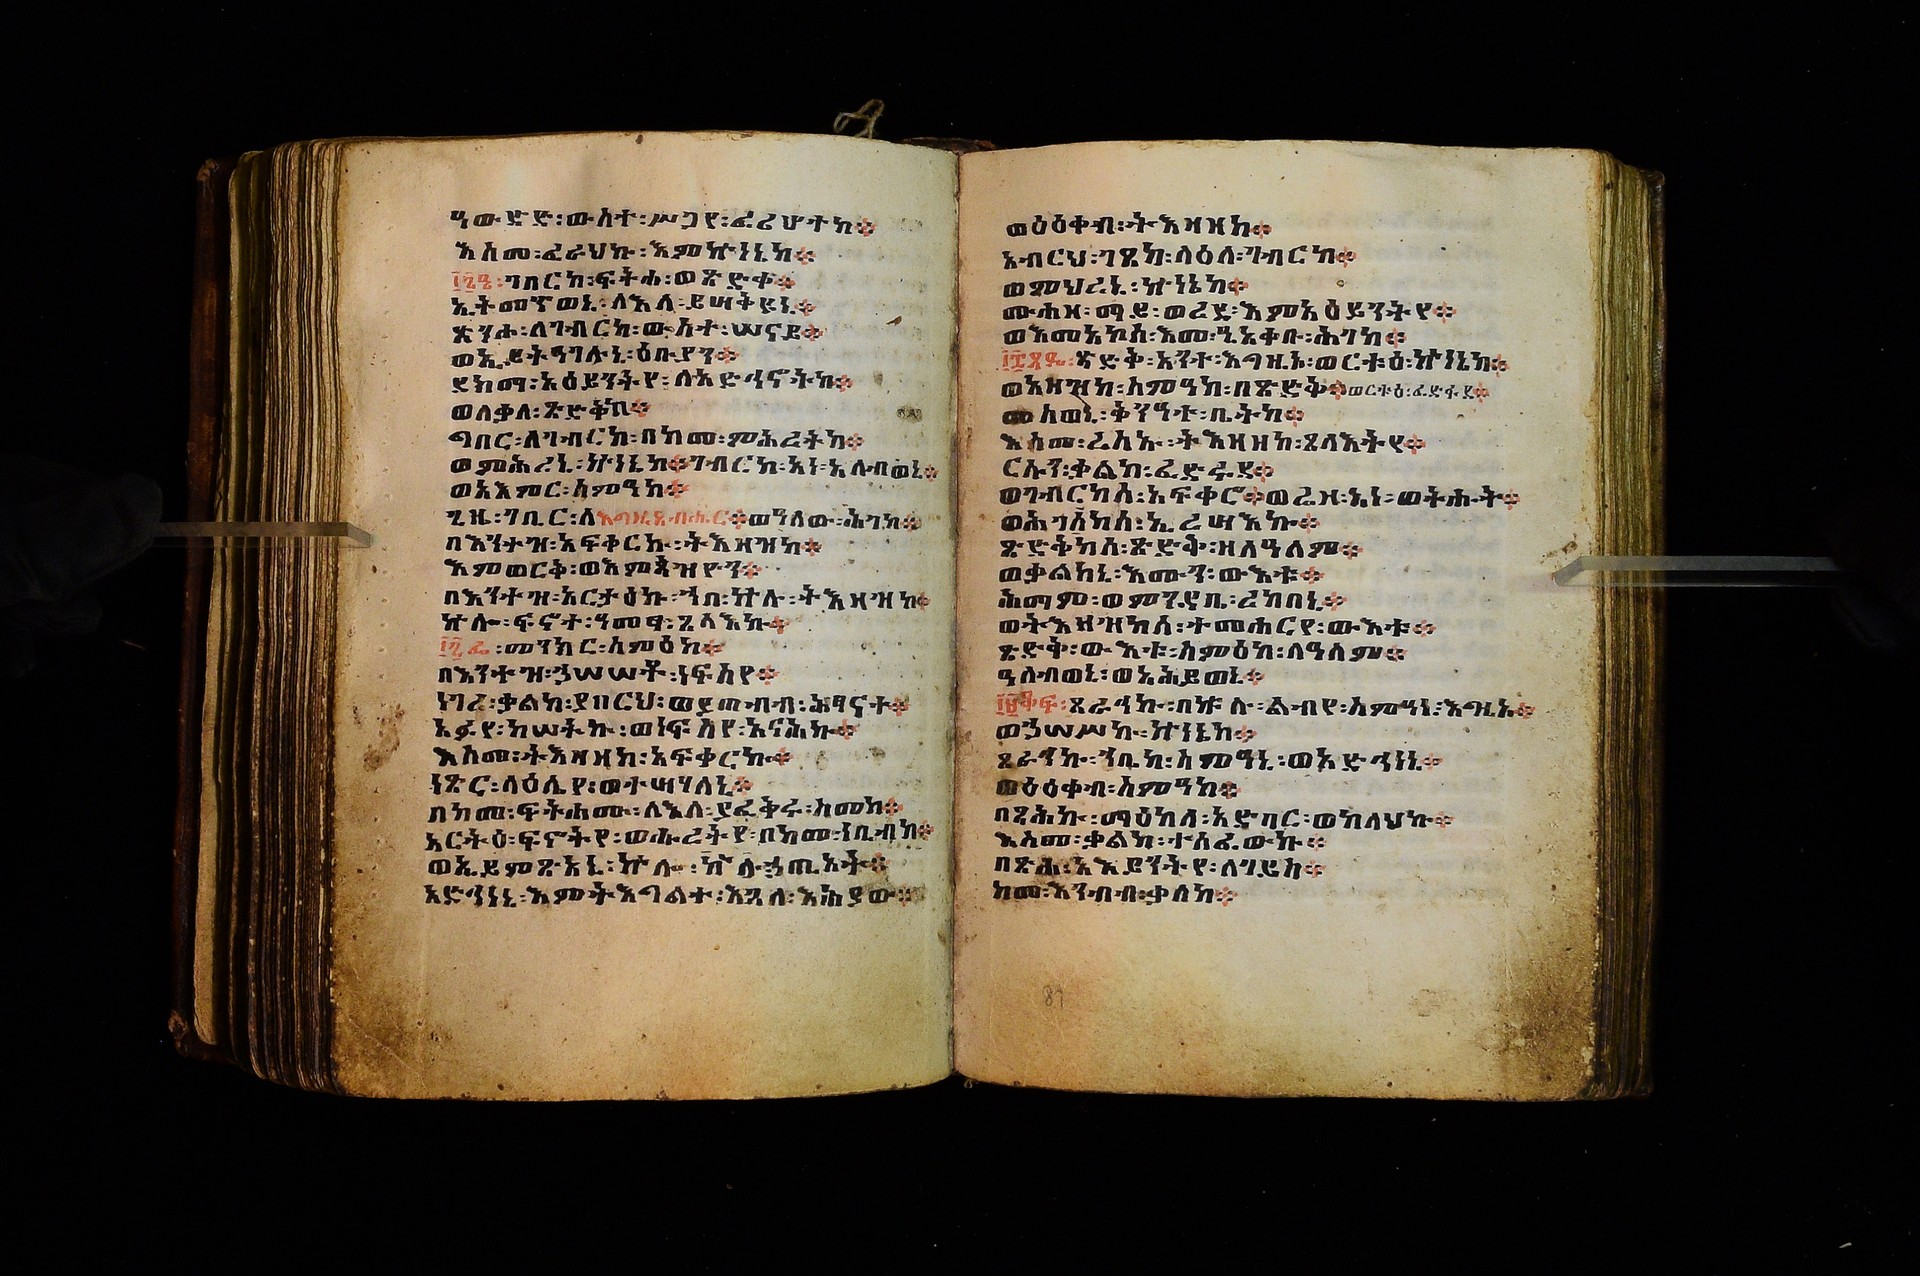 ዓውድድ፡ውስተ፡ሥጋየ፡ፈሪሆተከ፨
እስመ፡ፈራህኩ፡እምኵነኔከ፨
ገበርኩ፡ፍትሐ፡ወጽድቀ፨
ኢትመጥወኒ፡ለእለ፡ይሣቅዩኒ፨
ጽንሖ፡ለገብርከ፡ውስተ፡ሠናይ፨
ወኢይትዓገሉኒ፡ዕቡያን፨
ደክማ፡አዕይንትየ፡ለአድኅኖትከ፨
ወለቃለ፡ጽድቅከ፨
ግበር፡ለገብርከ፡በከመ፡ምሕረትከ፨
ወምሕረኒ፡ኵነኔከ፨ገብርከ፡አነ፡አለብወኒ፨
ወአእምር፡ስምዓከ፨
ጊዜ፡ገቢር፡ለእግዚአብሔር፨ወዓለው፡ሕገከ፨
በእንተዝ፡አፍቀርኩ፡ትእዛዝከ፨
እምወርቅ፡ወእምጳዝዮን፨
በእንተዝ፡አርታዕኩ፡ኀበ፡ኵሉ፡ትእዛዝከ፨
ኵሎ፡ፍኖተ፡ዓመፃ፡ጸላእኩ፨
መንክር፡ስምዕከ፨
በእንተዝ፡ኃሠሠቶ፡ነፍስየ፨
ነገረ፡ቃልከ፡ያበርህ፡ወያጠብብ፡ሕፃናተ፨
አፉየ፡ከሠትኩ፡ወነፍስየ፡አናሕኩ፨
እስመ፡ትእዛዘከ፡አፍቀርኩ፨
ነጽር፡ላዕሌየ፡ወተሣሃለኒ፨
በከመ፡ፍትሐሙ፡ለእለ፡ያፈቅሩ፡ስመከ፨
አርትዕ፡ፍኖትየ፡ወሑረትየ፡በከመ፡ነቢብከ፨
ወኢይምጽአኒ፡ኵሎ፡ኵሉ፡ኃጢአት፨
አድኅነኒ፡እምትእግልተ፡እጓለ፡እሕያው፨
ወዕዕቀብ፡ትእዛዘከ፨
አብርህ፡ገጸከ፡ላዕለ፡ገብርከ፨
ወምህረኒ፡ኵነኔከ፨
ሙሐዘ፡ማይ፡ወረደ፡እምአዕይንትየ፨
ወእመአኮሰ፡እመ፡ኢአቀቡ፡ሕገከ፨
ጻድቅ፡አንተ፡እግዚኦ፡ወርቱዕ፡ኵነኔከ፨
ወአዘዝከ፡ስምዓከ፡በጽድቅ፨ወርቱዕ፡ፈድፋደ፨
መሰወኒ፡ቅንዓተ፡ቤትከ፨
እስመ፡ረስኡ፡ትእዛዘከ፡ጸላእትየ፨
ርሱን፡ቃልከ፡ፈድፋደ፨
ወገብርከሰ፡አፍቀሮ፨ወሬዛ፡አነ፡ወትሑት፨
ወሕገከሰ፡ኢረሣእኩ፨
ጽድቅከሰ፡ጽድቅ፡ዘለዓለም፨
ወቃልከኒ፡እሙን፡ውእቱ፨
ሕማም፡ወምንዳቤ፡ረከበኒ፨
ወትእዛዝከሰ፡ተመሐርየ፡ውእቱ፨
ጽድቅ፡ውእቱ፡ስምዕከ፡ለዓለም፨
ዓለብወኒ፡ወአሕይወኒ፨
ጸራኅኩ፡በኵሉ፡ልብየ፡ስምዓኒ፡እግዚኦ፨
ወኃሠሥኩ፡ኵነኔከ፨
ጸራኅኩ፡ኀቤከ፡ስምዓኒ፡ወአድኅነኒ፨
ወዕዕቀብ፡ስምዓከ፨
በጻሕኩ፡ማዕከለ፡አድባር፡ወከላህኩ፨
እስመ፡ቃልከ፡ተሰፈውኩ፨
በጽሐ፡አእይንትየ፡ለገይስ፨
ከመ፡እንብብ፡ቃለከ፨
87